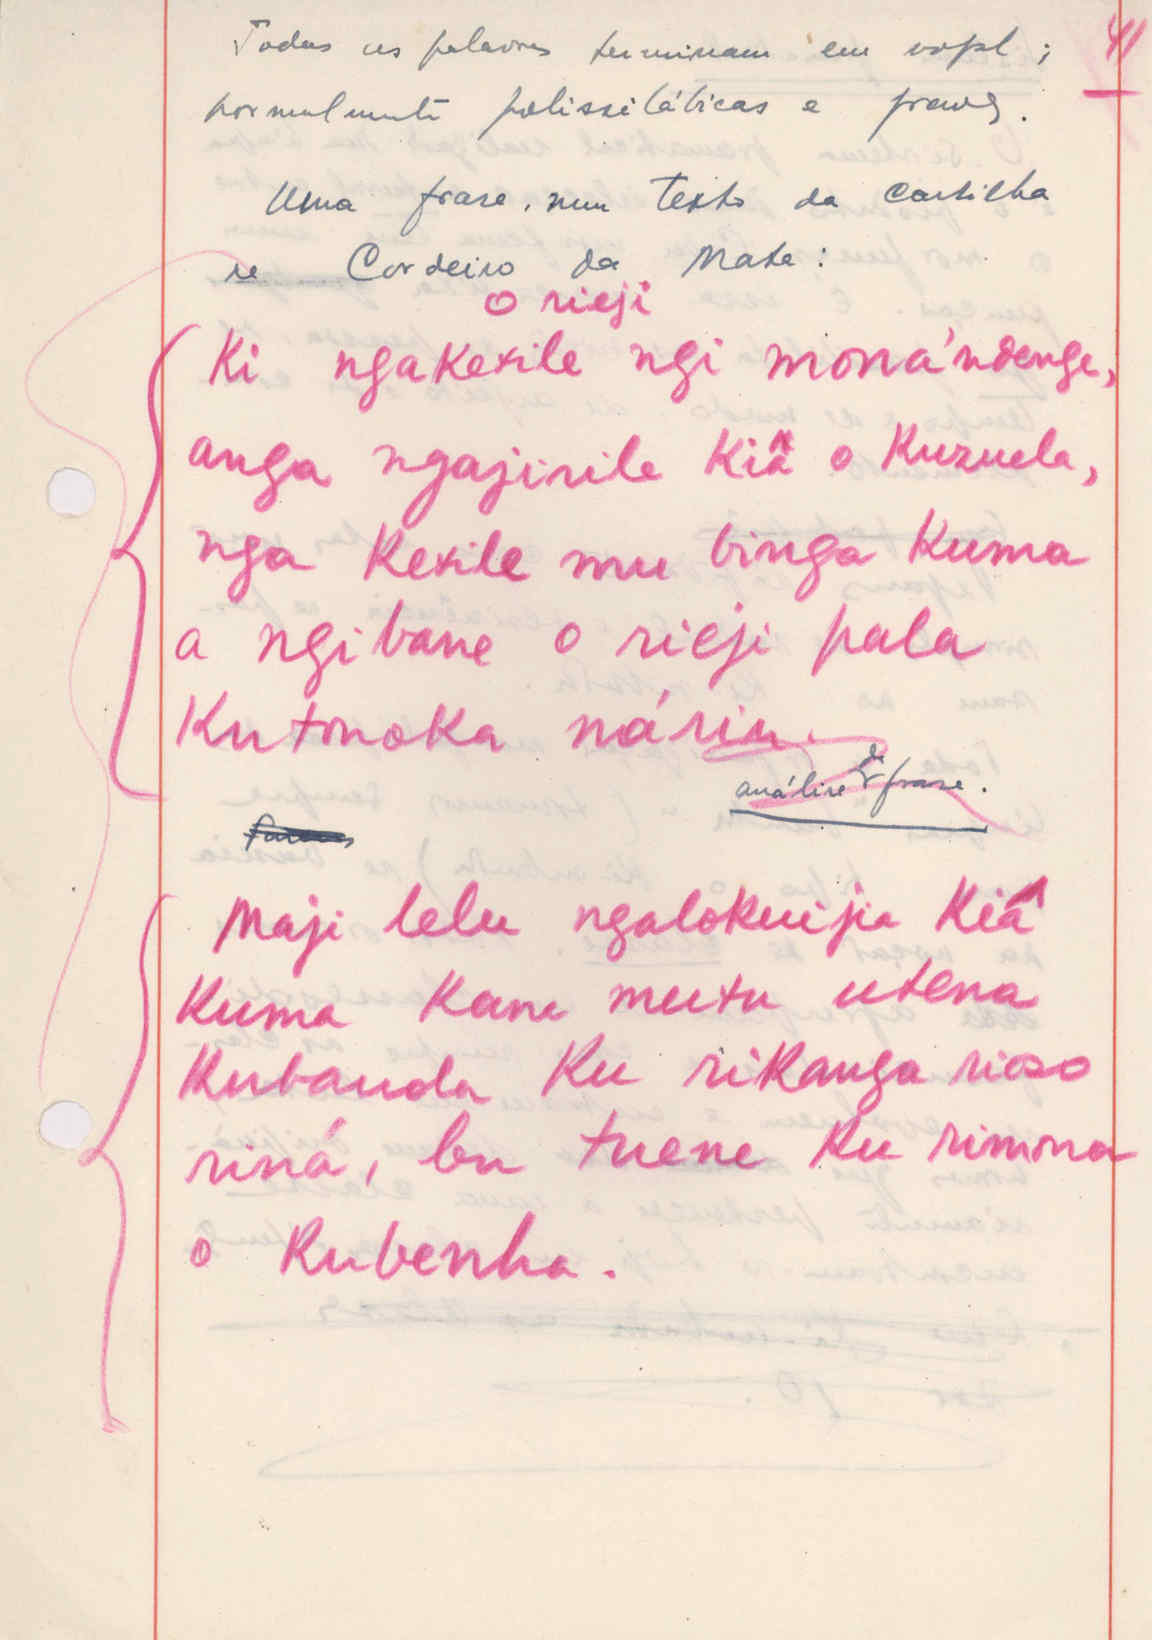 41
Todas as palavras terminam em vogal;
normalmente polissilábicas e graves.
Uma frase, num texto da cartilha
de Cordeiro da Mata:
o rieji
Ki ngakexile ngi mona'ndenge,
anga ngajirile kiá o kuzuela,
nga kexile mu binga kuma
a ngi bane o rieji pala
kutonoka náriu.
análise da frase.
Maji lelu ngalokuijia kiá
kuma kana mutu utena
kubanda ku rikanga rioso
riná, bu tuene ku rimona
o kubenha.